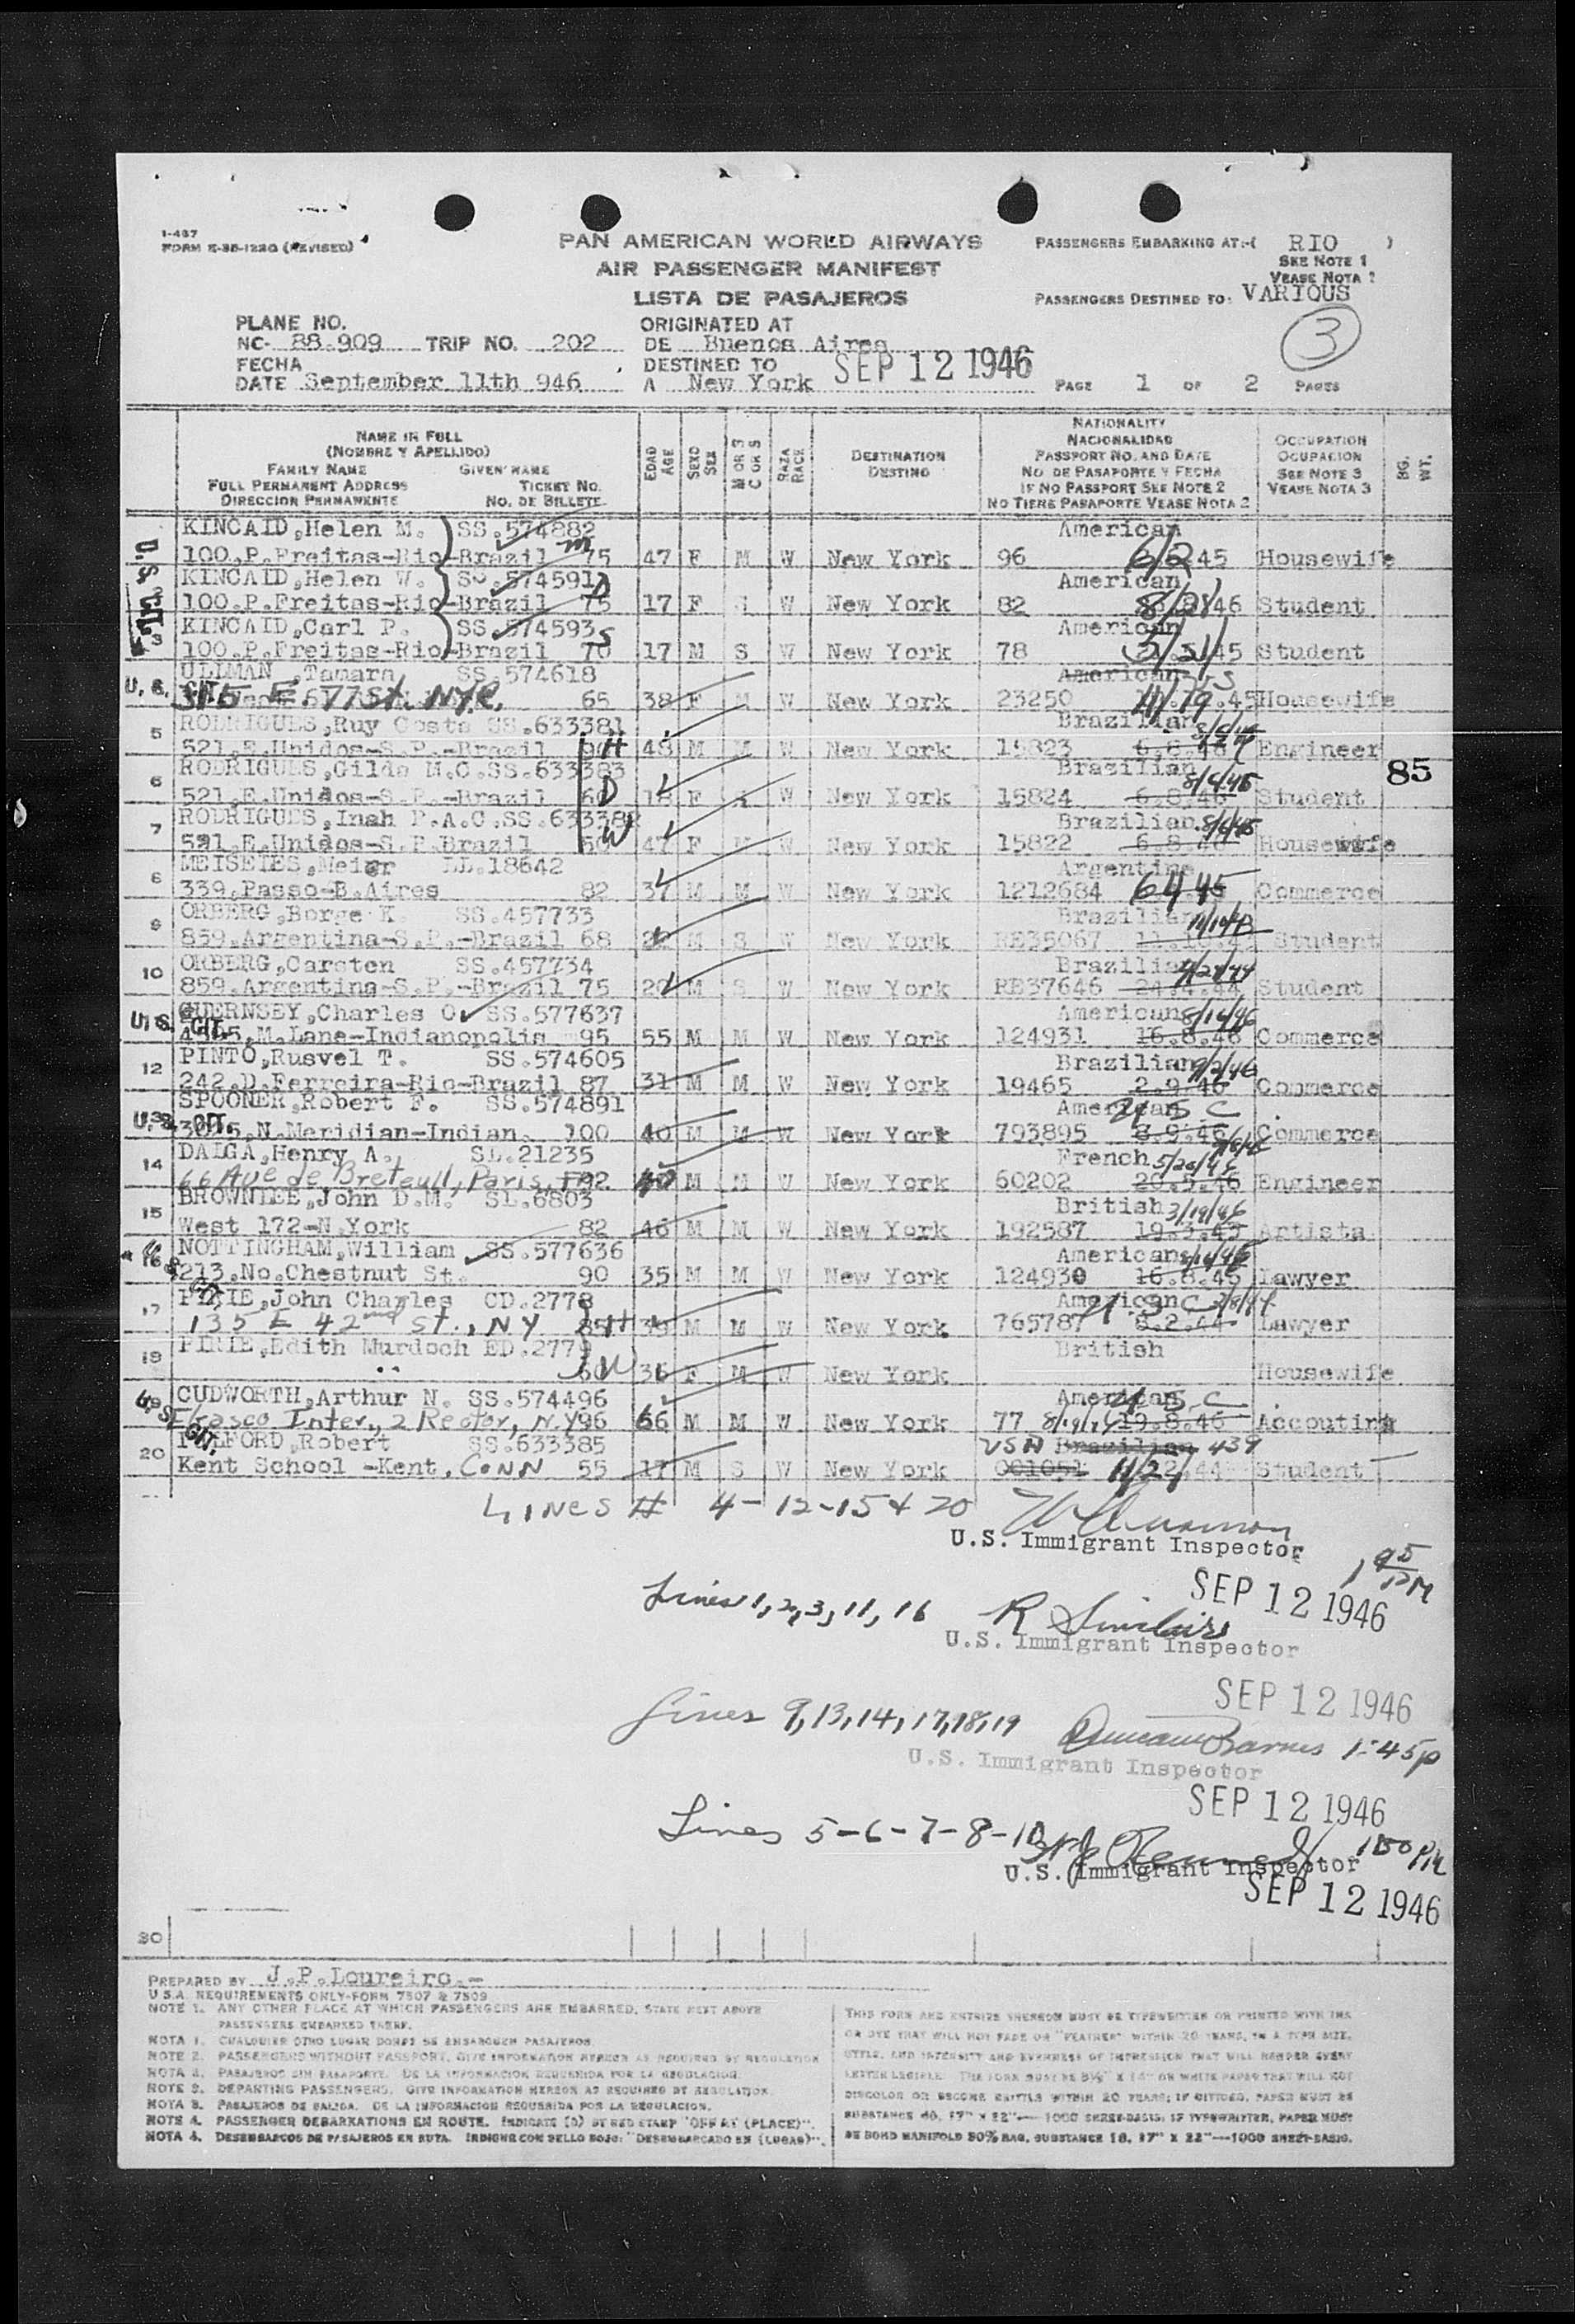 I-487
FORM E-38-1220 (REVISED)
PAN AMERICAN WORLD AIRWAYS
AIR PASSENGER MANIFEST
LISTA DE PASAJEROS
PASSENGERS EMBARKING AT:-( RIO )
SEE NOTE 1
VEASE NOTA 1
PASSENGERS DESTINED TO: VARIOUS
3
PLANE NO.
NC- 88.909 TRIP NO. 202
FECHA
DATE September 11th 946
ORIGINATED AT
DE Buenos Aires
DESTINED TO
A New York
SEP 12 1946
PAGE 1 OF 2 PAGES
NAME IN FULL
(NOMBRE Y APELLIDO)
FAMILY NAME GIVEN NAME
FULL PERMANENT ADDRESS TICKET NO.
DIRECCION PERMANENTE NO. DE BILLETE
EDAD AGE
SEXO SEX
M OR S C OR S
RAZA RACE
DESTINATION
DESTINO
NATIONALITY
NACIONALIDAD
PASSPORT NO. AND DATE
NO. DE PASAPORTE Y FECHA
IF NO PASSPORT SEE NOTE 2
NO TIENE PASAPORTE VEASE NOTA 2
OCCUPATION
OCUPACION
SEE NOTE 3
VEASE NOTA 3
BG. WT.
KINCAID,Helen M. SS.574882 American
100.P.Freitas-Rio-Brazil m 75 47 F M W New York 96 6/2 45 Housewife
KINCAID,Helen W. SS.574591 D American
100.P.Freitas-Rio-Brazil 75 17 F S W New York 82 46 Student
3 KINCAID,Carl P. SS.574593 S American
100.P.Freitas-Rio-Brazil 70 17 M S W New York 78 45 Student
ULLMAN ,Tamara SS.574618 American
U.S. CIT. 315 E 77 St. NYC. 65 38 F M W New York 23250 11.19.45 Housewife
5 RODRIGUES,Ruy Costa SS.633381 Brazilian
521.E.Unidos-S.P.-Brazil 90 H 48 M M W New York 15823 6.8.46 Engineer
6 RODRIGUES,Gilda M.C.SS.633383 Brazilian 8/6/46
521.E.Unidos-S.P.-Brazil 60 D 18 F S W New York 15824 6.8.46 Student
85
7 RODRIGUES,Inah P.A.C.SS.633382 Brazilian 8/6/46
521.E.Unidos-S.P.Brazil 50 W 47 F M W New York 15822 6.8.46 Housewife
8 MEISELES,Meier LL.18642 Argentine
339.Passo-B.Aires 82 37 M M W New York 1212684 Commerce
9 ORBERG,Borge K. SS.457733 Brazilian
859.Argentina-S.P.-Brazil 68 22 M S W New York RE35067 Student
10 ORBERG,Carsten SS.457734 Brazilian 4/24/44
859.Argentina-S.P.-Brazil 75 20 M S W New York RE37646 24.4.44 Student
GUERNSEY,Charles O. SS.577637 American 8/16/46
U.S. CIT. M.Lane-Indianopolis 95 55 M M W New York 124931 16.8.46 Commerce
12 PINTO,Rusvel T. SS.574605 Brazilian 9/2/46
242.D.Ferreira-Rio-Brazil 87 31 M M W New York 19465 2.9.46 Commerce
SPOONER,Robert F. SS.574891 American U S C
U.S. CIT. N.Meridian-Indian. 100 40 M M W New York 793895 8.9.46 Commerce
14 DALGA,Henry A. SL.21235 French 5/20/46
66 Ave de Breteuil, Paris, Fr 92 40 M M W New York 60202 20.5.46 Engineer
15 BROWNLEE,John D.M. SL.6803 British 3/19/45
West 172-N.York 82 46 M M W New York 192587 19.3.45 Artista
16 NOTTINGHAM,William SS.577636 American
213.No.Chestnut St. 90 35 M M W New York 124930 16.8.45 Lawyer
17 PIRIE,John Charles CD.2778 American U.S.C 2/8/44
135 E 42nd St., NY 85 H 39 M M W New York 765787 8.2.44 Lawyer
18 PIRIE,Edith Murdoch ED.2779 British
" 60 W 36 F M W New York Housewife
19 CUDWORTH,Arthur N. SS.574496 American U S C
Ebasco Inter., 2 Rector, N.Y 96 66 M M W New York 77 8/19/46 19.8.46 Accouting
20 FULFORD,Robert SS.633385 USA Brazilian 439
Kent School -Kent, CONN 55 17 M S W New York 001051 11/22/44 Student
LINES # 4-12-15 & 20
U.S. Immigrant Inspector
1 45 PM
SEP 12 1946
Lines 1,2,3,11,16 R Sinclair
U.S. Immigrant Inspector
SEP 12 1946
Lines 9,13,14,17,18,19 Duncan Barnes 1:45p
U.S. Immigrant Inspector
SEP 12 1946
Lines 5-6-7-8-10 150 PM
U.S. Immigrant Inspector
SEP 12 1946
30
PREPARED BY J.P.Loureiro.-
U S A REQUIREMENTS ONLY-FORM 7507 & 7509
NOTE 1. ANY OTHER PLACE AT WHICH PASSENGERS ARE EMBARKED, STATE NEXT ABOVE
PASSENGERS EMBARKED THERE.
NOTA 1. CUALQUIER OTRO LUGAR DONDE SE EMBARQUEN PASAJEROS.
NOTE 2. PASSENGERS WITHOUT PASSPORT, GIVE INFORMATION HEREON AS REQUIRED BY REGULATION
NOTA 2. PASAJEROS SIN PASAPORTE. DE LA INFORMACION REQUERIDA POR LA REGULACION.
NOTE 3. DEPARTING PASSENGERS. GIVE INFORMATION HEREON AS REQUIRED BY REGULATION.
NOTA 3. PASAJEROS DE SALIDA. DE LA INFORMACION REQUERIDA POR LA REGULACION.
NOTE 4. PASSENGER DEBARKATIONS EN ROUTE. INDICATE (S) BY RED STAMP "OFF AT (PLACE)".
NOTA 4. DESEMBARCOS DE PASAJEROS EN RUTA. INDIQUE CON SELLO ROJO: "DESEMBARCADO EN (LUGAR)".
THIS FORM AND ENTRIES THEREON MUST BE TYPEWRITTEN OR PRINTED WITH INK
OR DYE THAT WILL NOT FADE OR "FEATHER" WITHIN 20 YEARS, IN A TYPE SIZE,
STYLE, AND INTENSITY AND EVENNESS OF IMPRESSION THAT WILL RENDER EVERY
LETTER LEGIBLE. THE FORM MUST BE 8½" X 14" OR WHITE PAPER THAT WILL NOT
DISCOLOR OR BECOME BRITTLE WITHIN 20 YEARS; IF DITTOED, PAPER MUST BE
SUBSTANCE 40, 17" X 22"—1000 SHEET-BASIS; IF TYPEWRITER, PAPER MUST
BE BOND MANIFOLD 50% RAG, SUBSTANCE 18, 17" X 22"—1000 SHEET-BASIS.